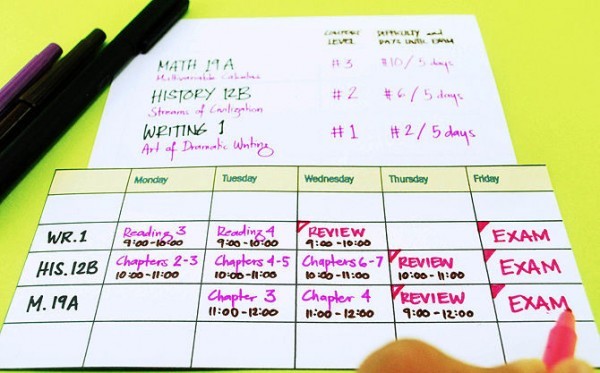 COMFORT DIFFICULTY and
LEVEL DAYS UNTIL EXAM
MATH 19A #3 #10/5 days
Multivariable Calculus
HISTORY 12B #2 #6/5 days
Streams of Civilization
WRITING 1 #1 #2/5 days
Art of Dramatic Writing
Monday Tuesday Wednesday Thursday Friday
WR.1 Reading 3 Reading 4 REVIEW EXAM
9:00-10:00 9:00-10:00 9:00-10:00
HIS.12B Chapters 2-3 Chapters 4-5 Chapters 6-7 REVIEW EXAM
10:00-11:00 10:00-11:00 10:00-11:00 10:00-11:00
M.19A Chapter 3 Chapter 4 REVIEW EXAM
11:00-12:00 11:00-12:00 9:00-12:00